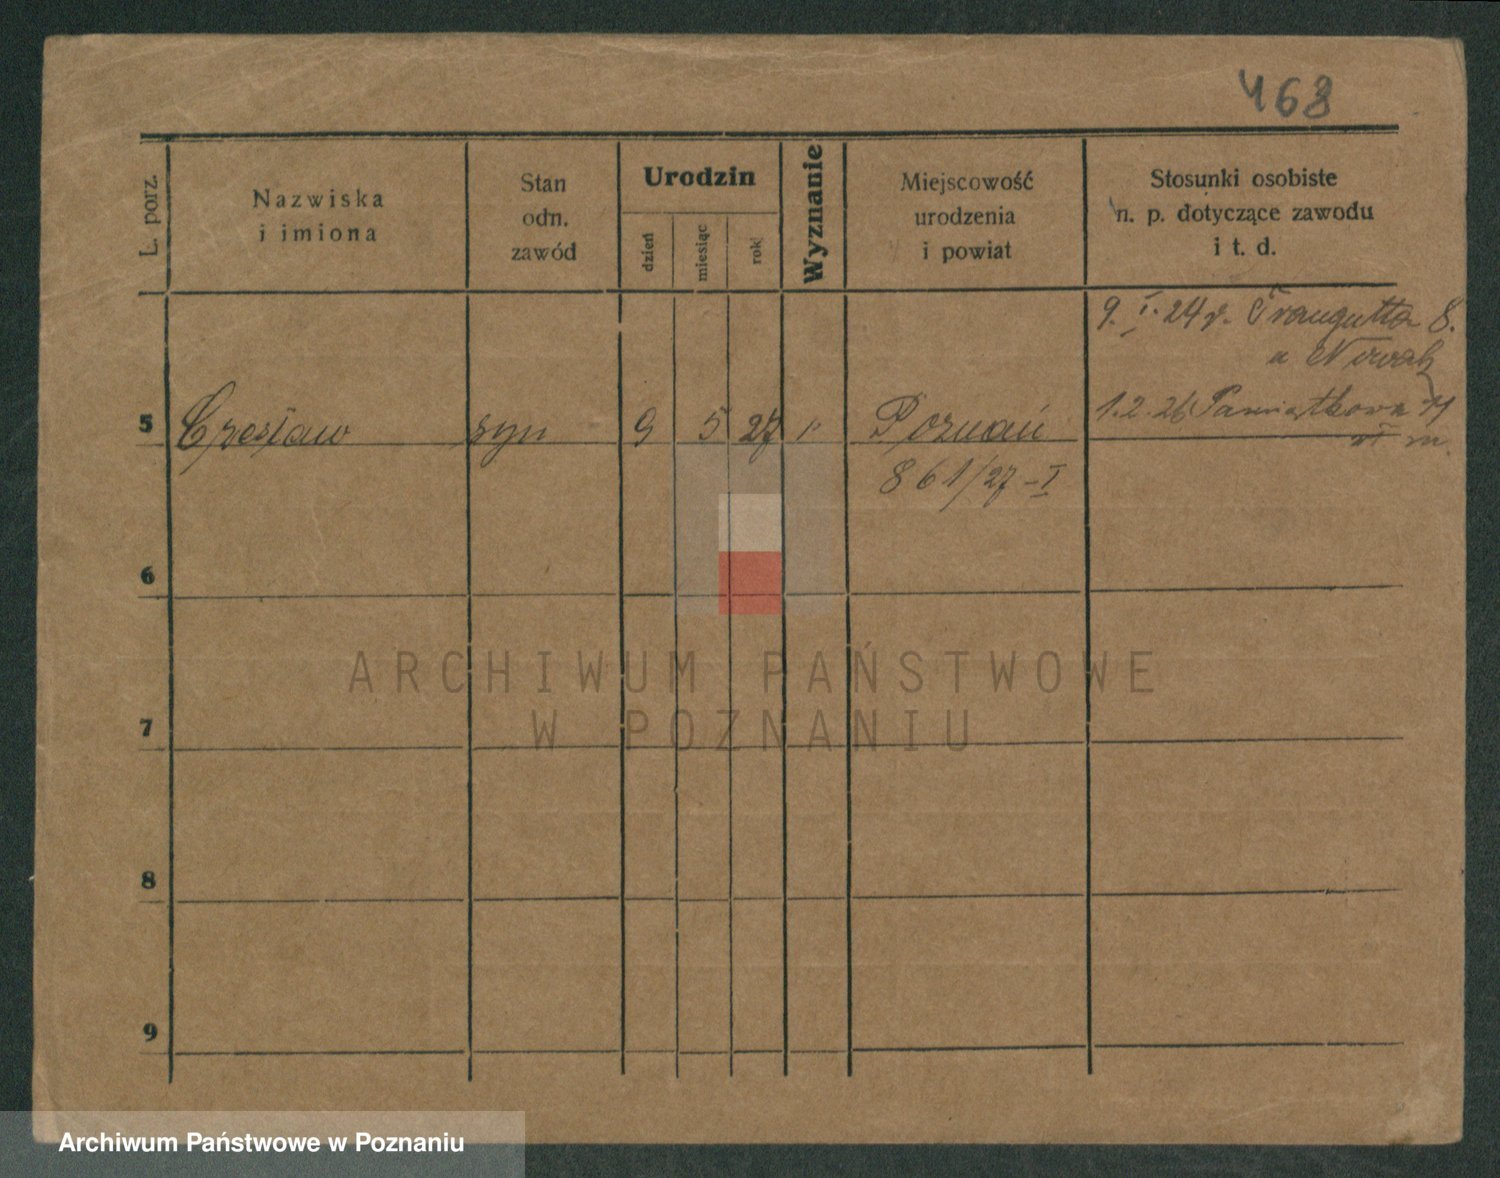 468
L. porz.
Nazwiska
i imiona
Stan
odn.
zawód
Urodzin
dzień
miesiąc
rok
Wyznanie
Miejscowość
urodzenia
i powiat
Stosunki osobiste
n. p. dotyczące zawodu
i t. d.
9. I. 24 r. Traugutta 8.
u Nowak
1.2.26 Pamiątkowa 11
m.
5 Czesław syn 9 5 27 " Poznań
861/27-I
6
7
8
9
ARCHIWUM PAŃSTWOWE
W POZNANIU
Archiwum Państwowe w Poznaniu